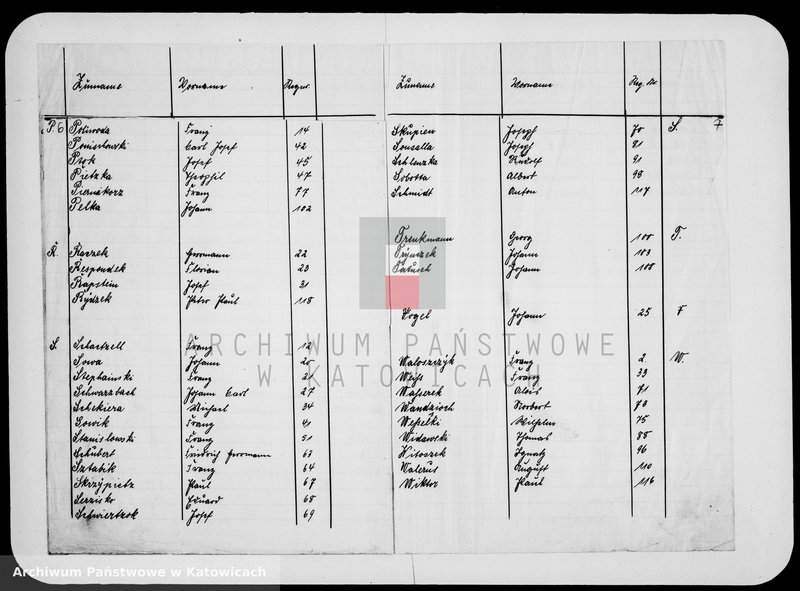 Zuname Vorname Regnr.
P. 6 Poliwoda Franz 14
Poniechowski Carl Josef 42
Ptok Josef 45
Pietzka Theophil 47
Piernikorz Franz 77
Pelka Johann 102
R. Raczek Hermann 22
Respondek Florian 23
Rapstein Josef 31
Rydzek Peter Paul 118
S. Schactzell Franz 12
Sowa Johann 20
Stephainski Franz 21
Schwarzbach Johann Carl 27
Schekiera Michael 34
Sowik Franz 41
Stanislowski Franz 51
Schubert Friedrich Hermann 63
Sztabik Franz 64
Skrzypietz Paul 67
Serzisko Eduard 68
Schwiertzok Josef 69
Zuname Vorname Reg. Nr
Skupien Joseph 70 S. 7
Sousalla Joseph 81
Schlenzka Rudolf 91
Sobotta Albert 98
Schmidt Anton 117
Trenkmann Georg 100 T.
Trynszek Johann 103
Tatusch Johann 108
Vogel Johann 25 V
Waloszczyk Franz 2 W.
Weiß Franz 33
Wasserek Alois 71
Wandzioch Norbert 73
Weßelki Wilhelm 75
Widawski Thomas 88
Witoszek Ignatz 96
Walerus August 110
Wiktor Paul 116
ARCHIWUM PAŃSTWOWE
W KATOWICACH
Archiwum Państwowe w Katowicach